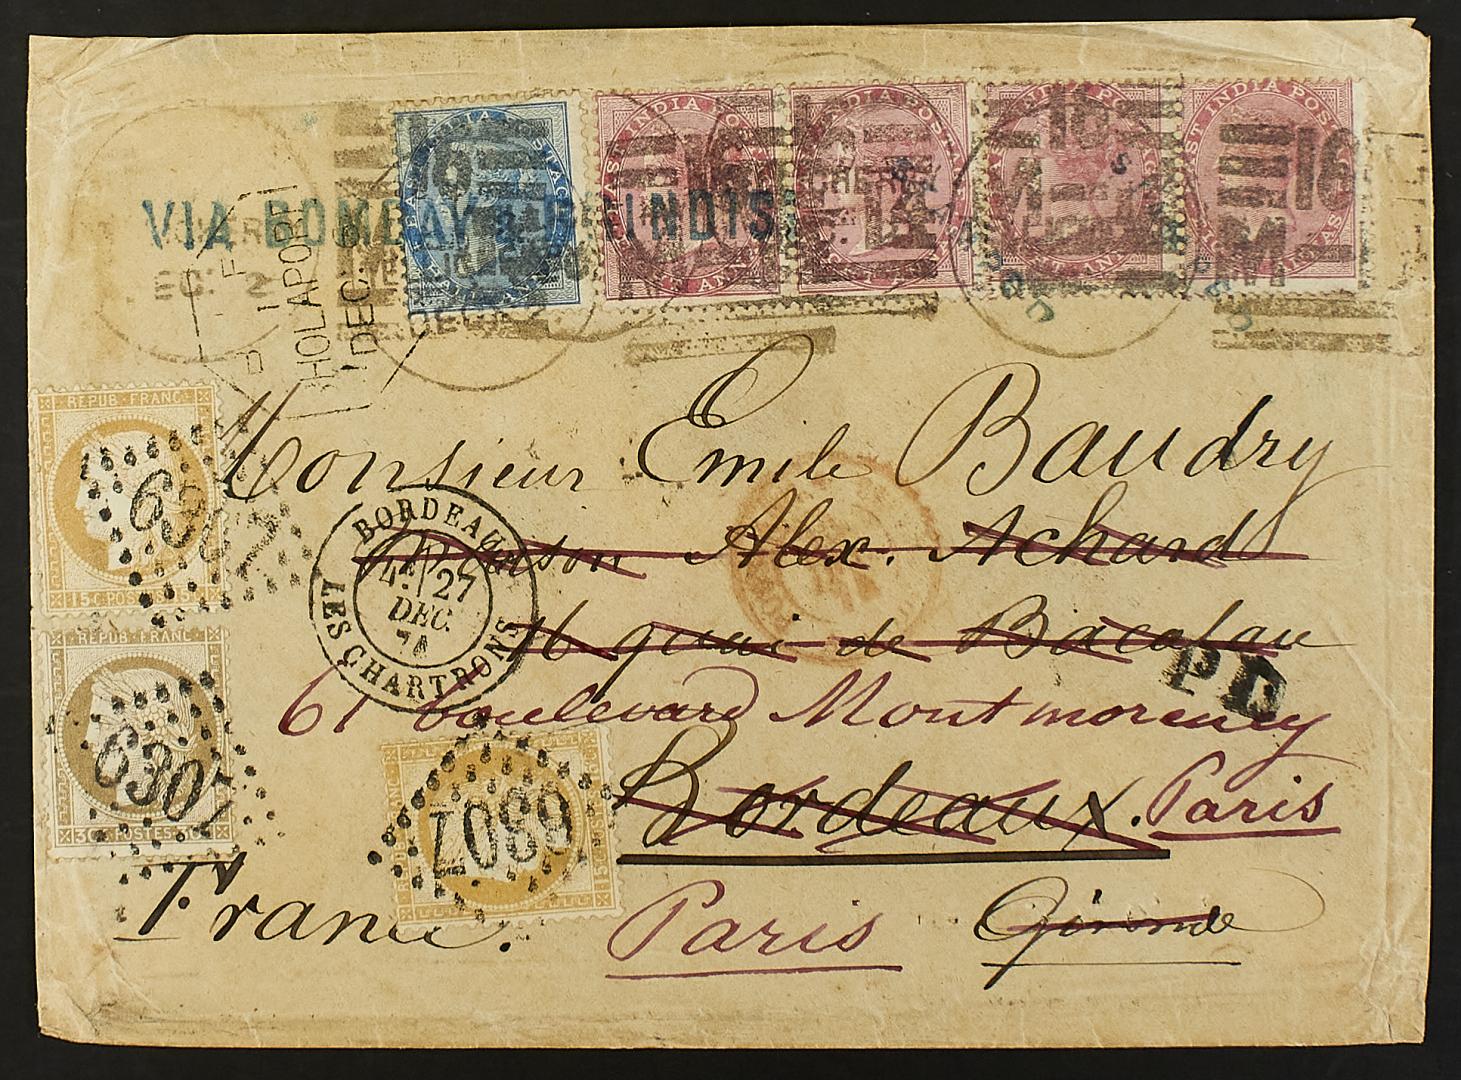 VIA BOMBAY & BRINDISI
HOLAPOR
DEC.
DEC: 2
16
16
REPUB FRANC
15 C. POSTES 15
6307
REPUB FRANC
30 C POSTES 30
6307
BORDEAUX
27
DEC.
74
LES CHARTRONS
Monsieur Emile Baudry
Maison Alex. Achard
16 quai de Bacalan
PD
61 boulevard Montmorency
Bordeaux. Paris
6307
France. Paris Gironde